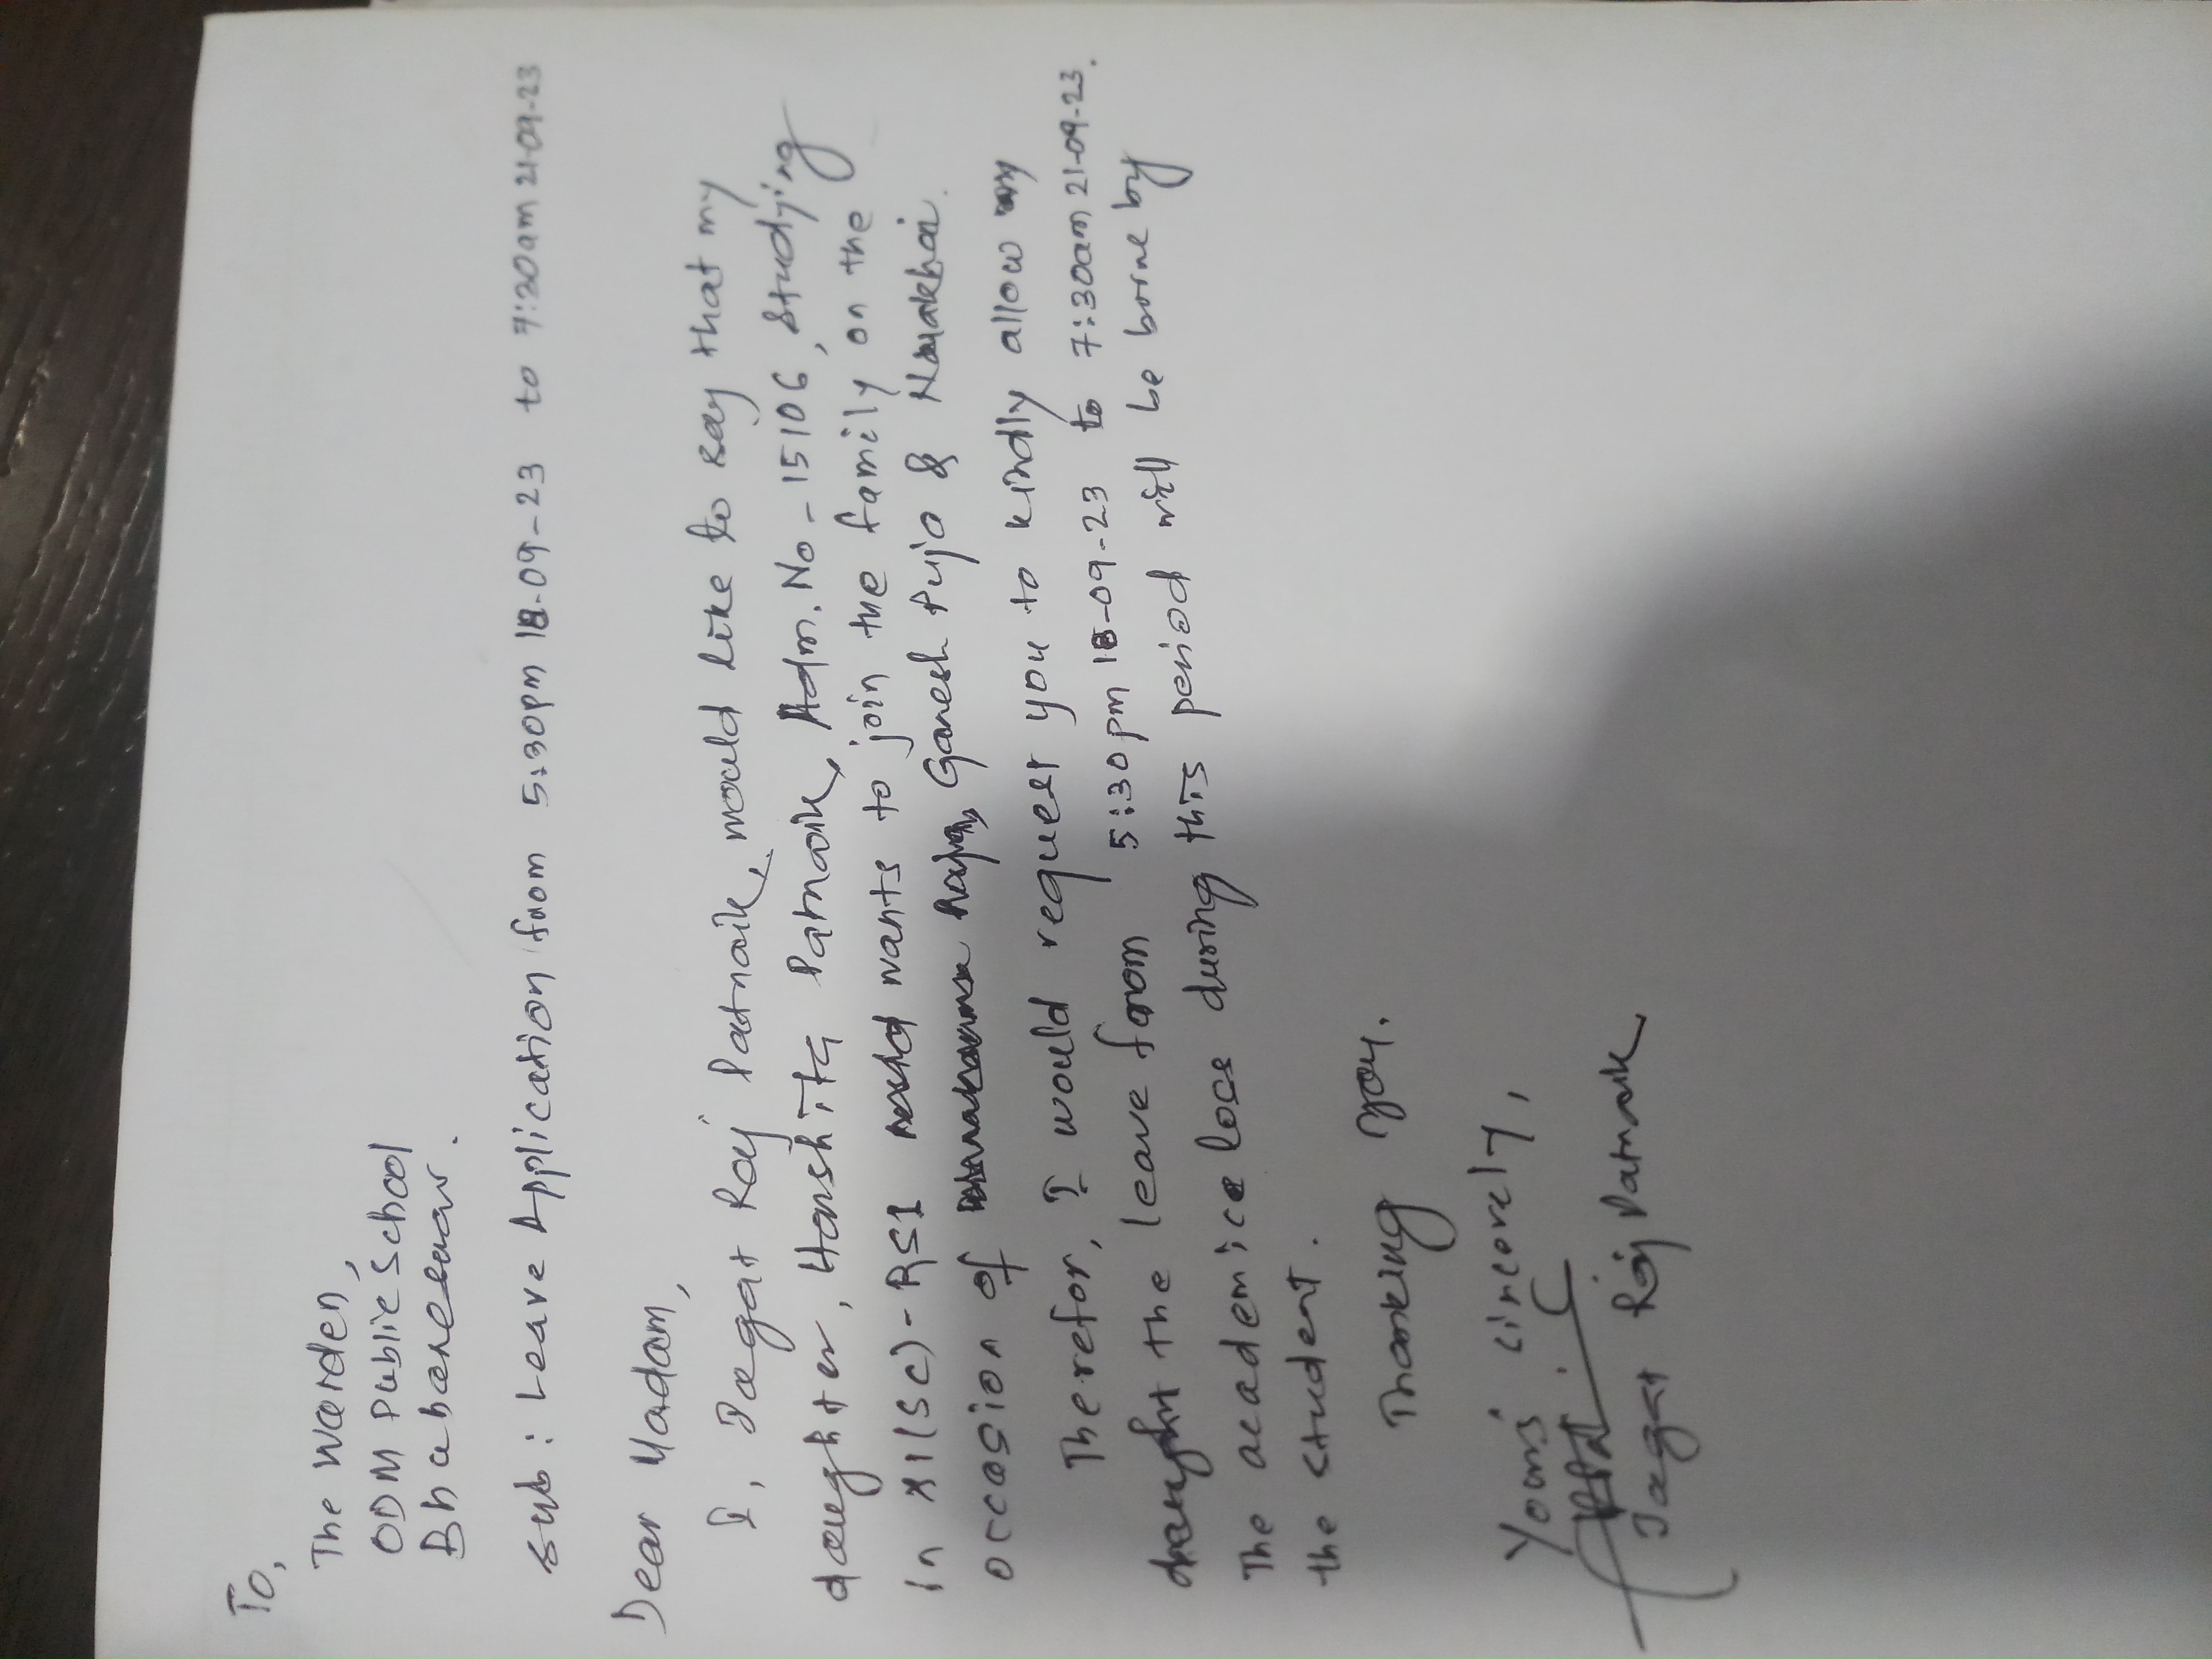 To,
The Warden,
ODM Public School
Bhubaneswar.
Sub: Leave Application from 5:30pm 18-09-23 to 7:30am 21-09-23
Dear Madam,
I, Jagat Raj Patnaik, would like to say that my
daughter, Harshita Patnaik, Adm. No - 15106, studying
in XI(Sc)-RS1 wants to join the family on the
occasion of Ganesh Pujo & Nuakhai.
Therefor, I would request you to kindly allow my
the leave from 5:30pm 18-09-23 to 7:30am 21-09-23.
The academice loss during this period will be borne by
the student.
Thanking you.
Yours sincerely,
Jagat Raj Patnaik